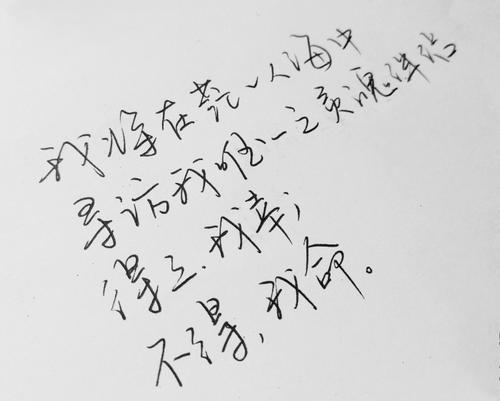 我将在茫茫人海中
寻访我唯一之灵魂伴侣
得之,我幸;
不得,我命。